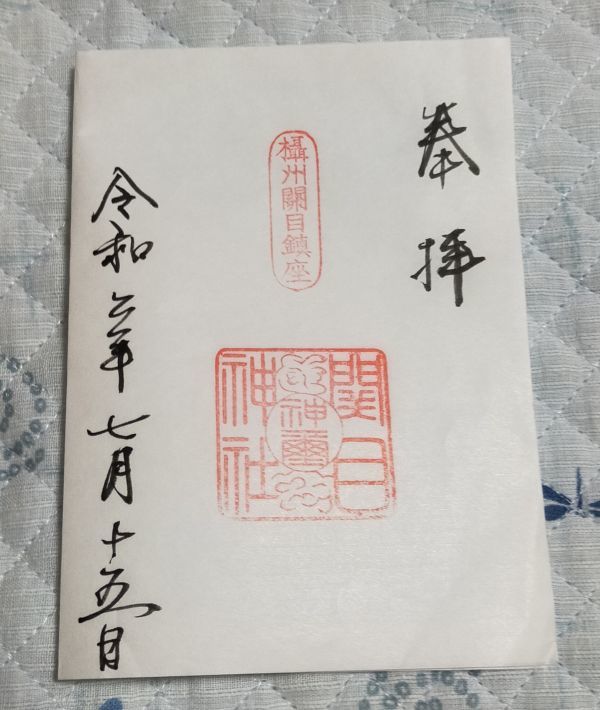 奉拝
攝州關目鎮座
関目
神璽
神社
令和六年七月十五日